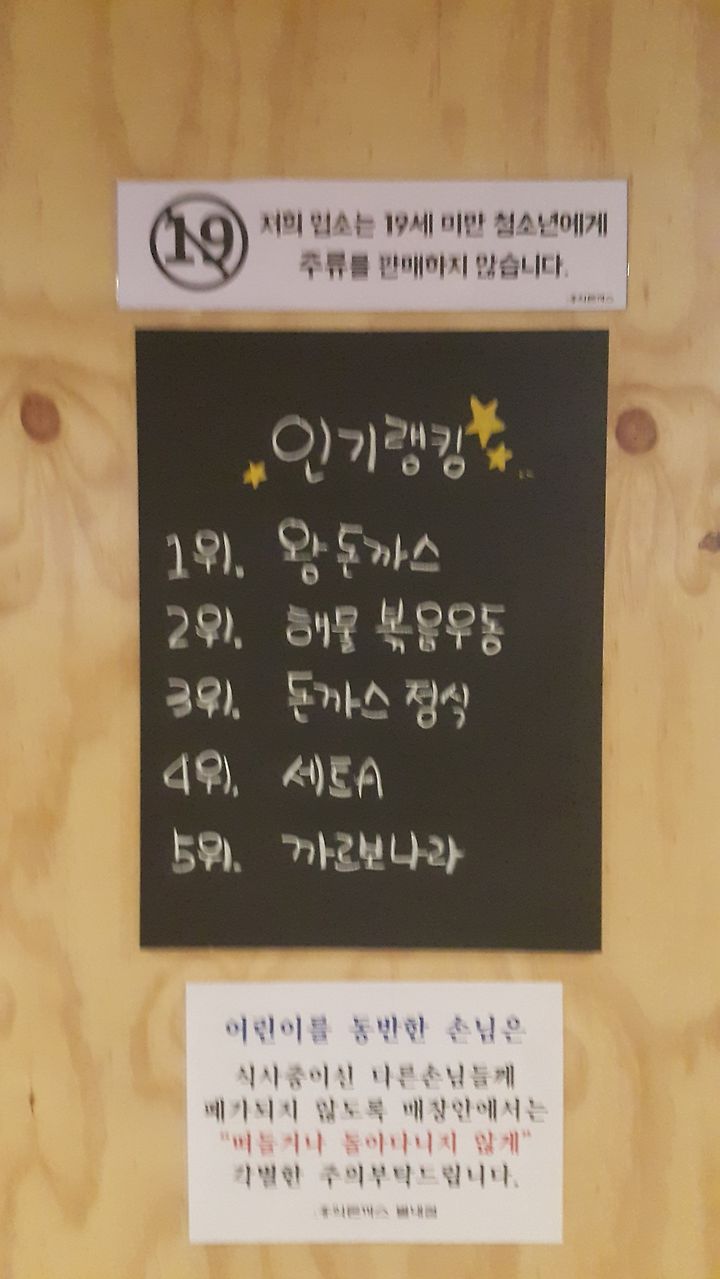 19
저희 업소는 19세 미만 청소년에게
주류를 판매하지 않습니다.
인기랭킹
1위. 왕돈까스
2위. 해물 볶음우동
3위. 돈까스 정식
4위. 세트A
5위. 까르보나라
어린이를 동반한 손님은
식사중이신 다른손님들께
폐가되지 않도록 매장안에서는
"떠들거나 돌아다니지 않게"
각별한 주의부탁드립니다.